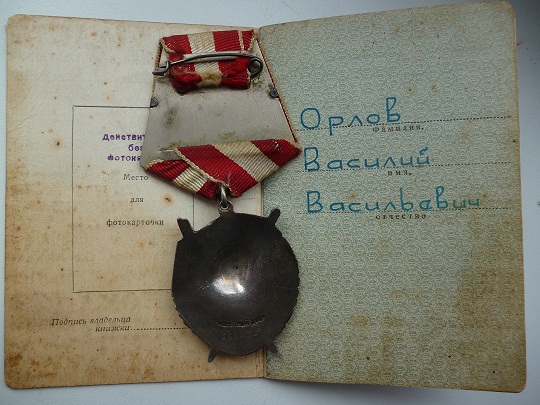 Действит
без
фотока
Место
для
фотокарточки
Подпись владельца
книжки
Орлов
фамилия,
Василий
имя,
Васильевич
отчество